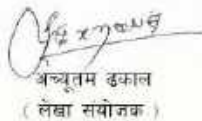 अच्यूतम ढकाल
( लेखा संयोजक )